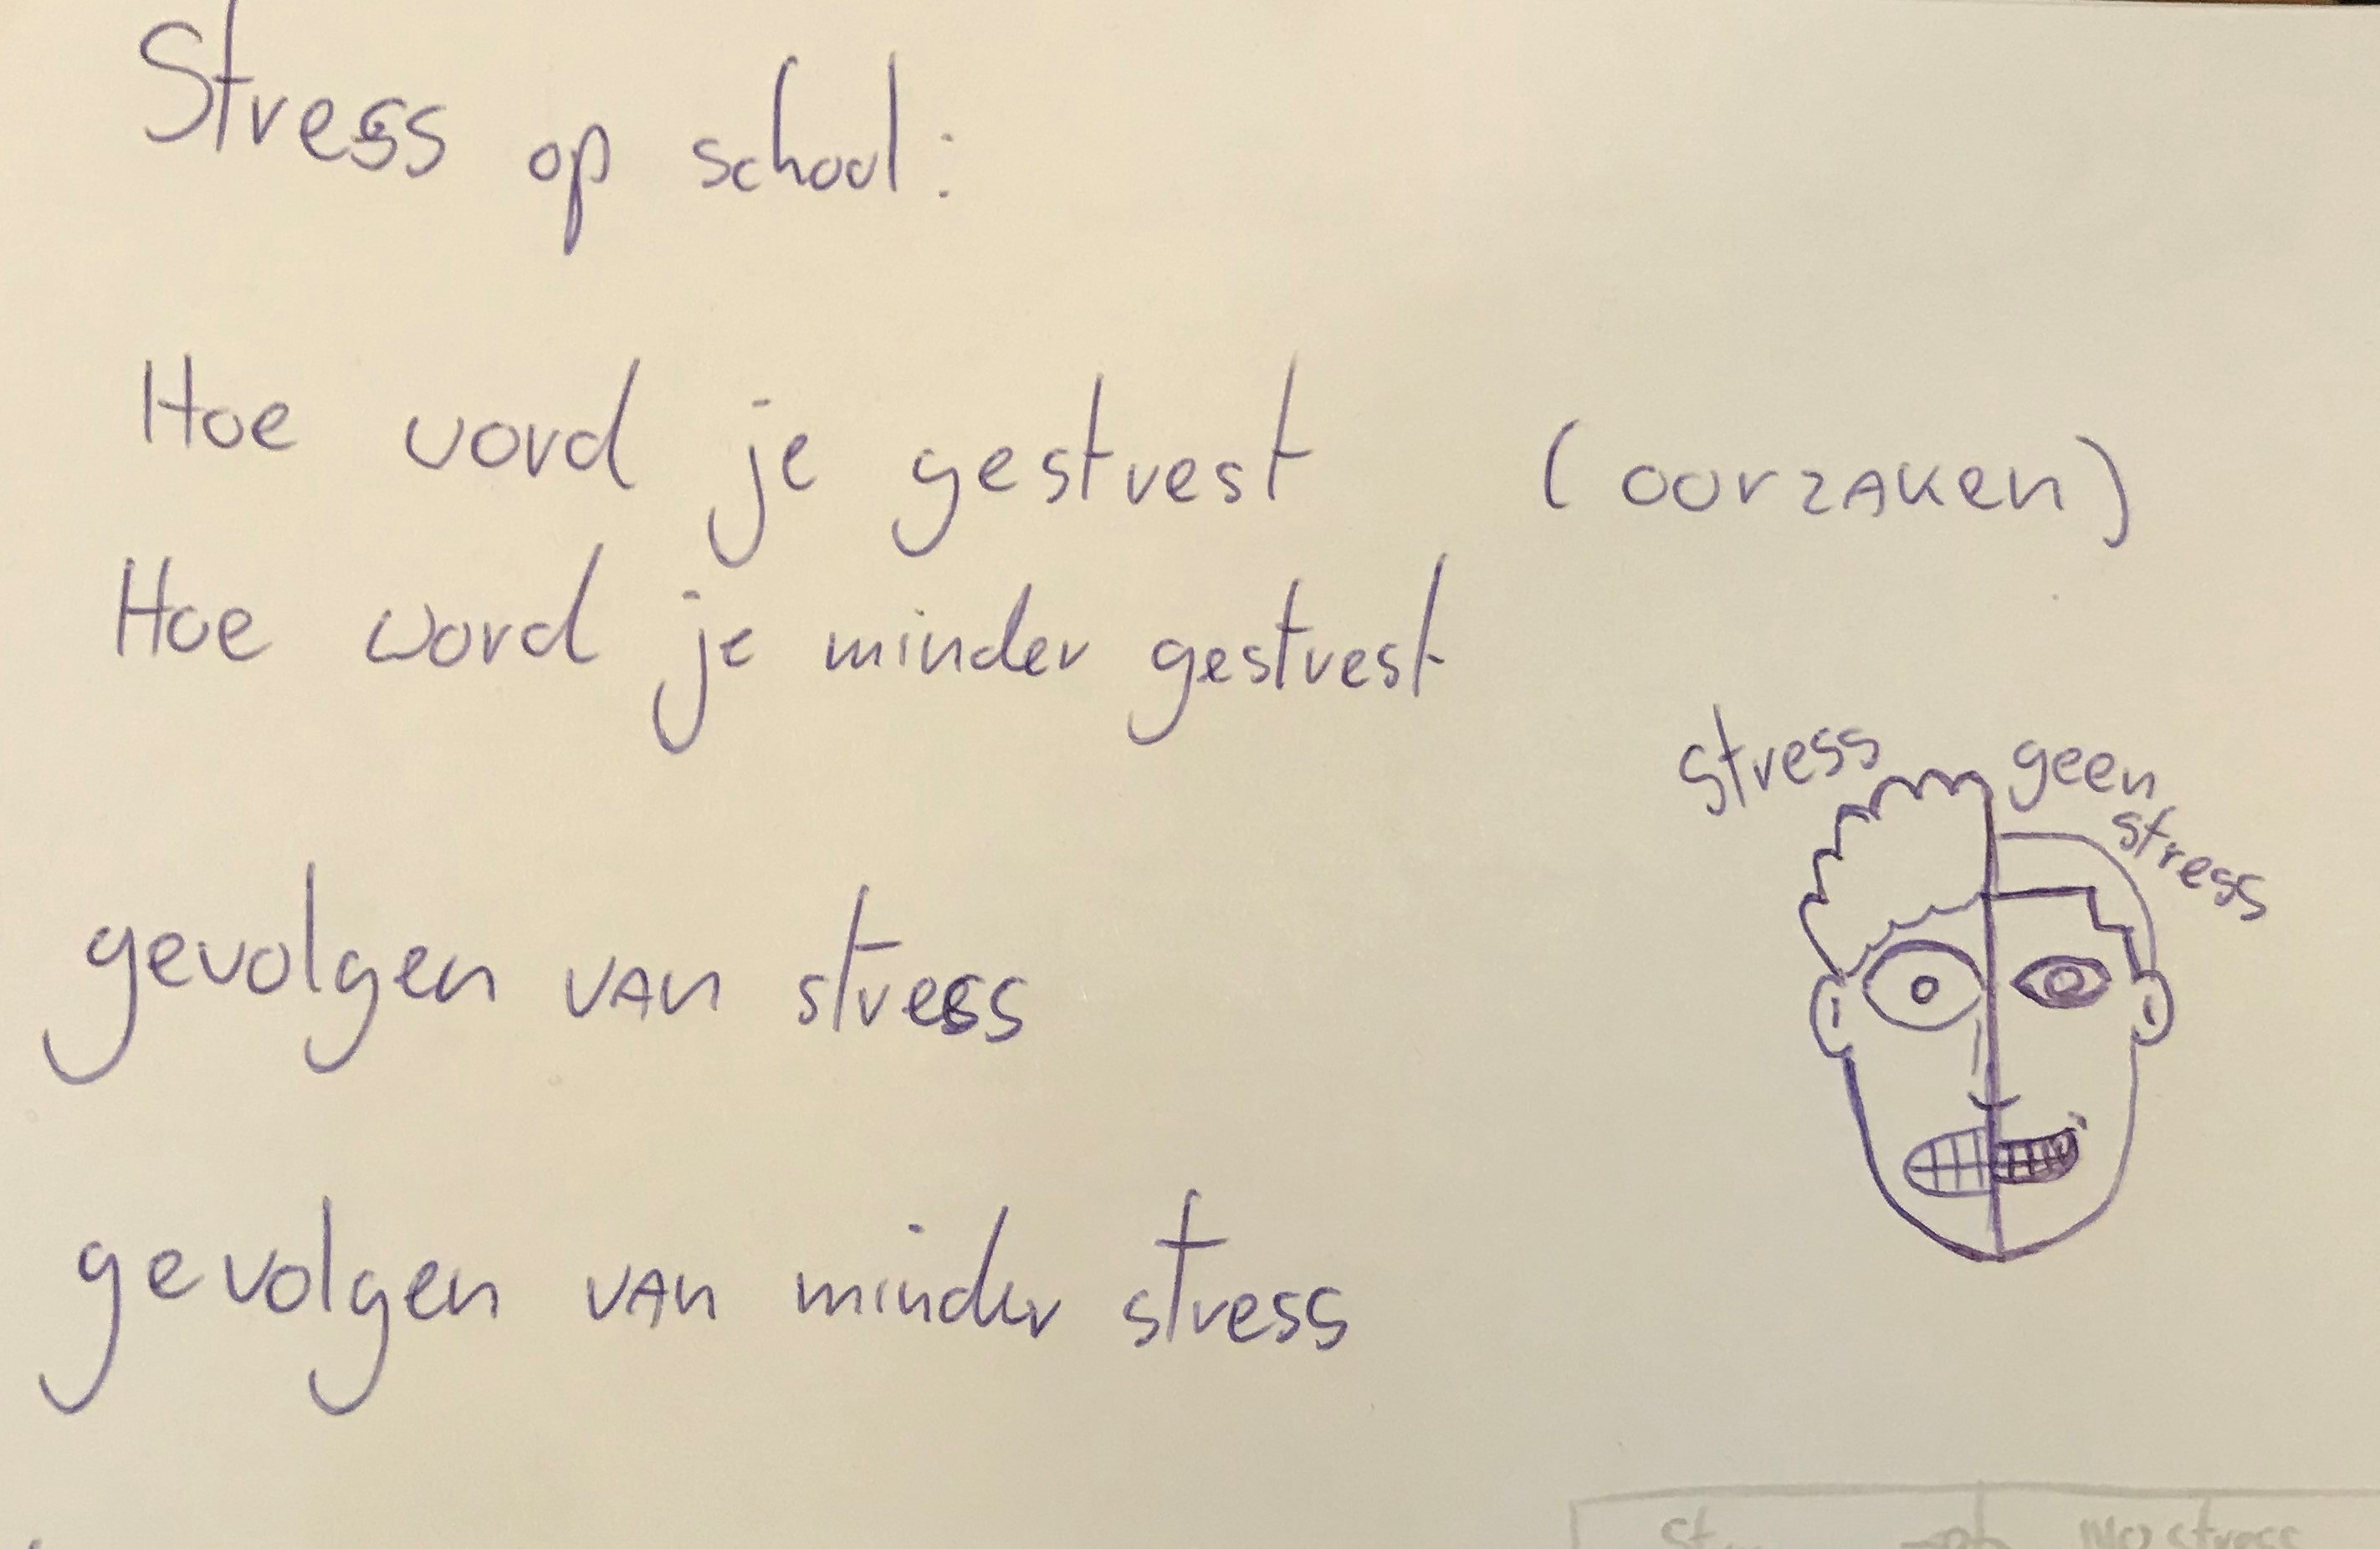 Stress op school:
Hoe word je gestrest (oorzaken)
Hoe word je minder gestrest
stress geen
stress
gevolgen van stress
gevolgen van minder stress
No stress